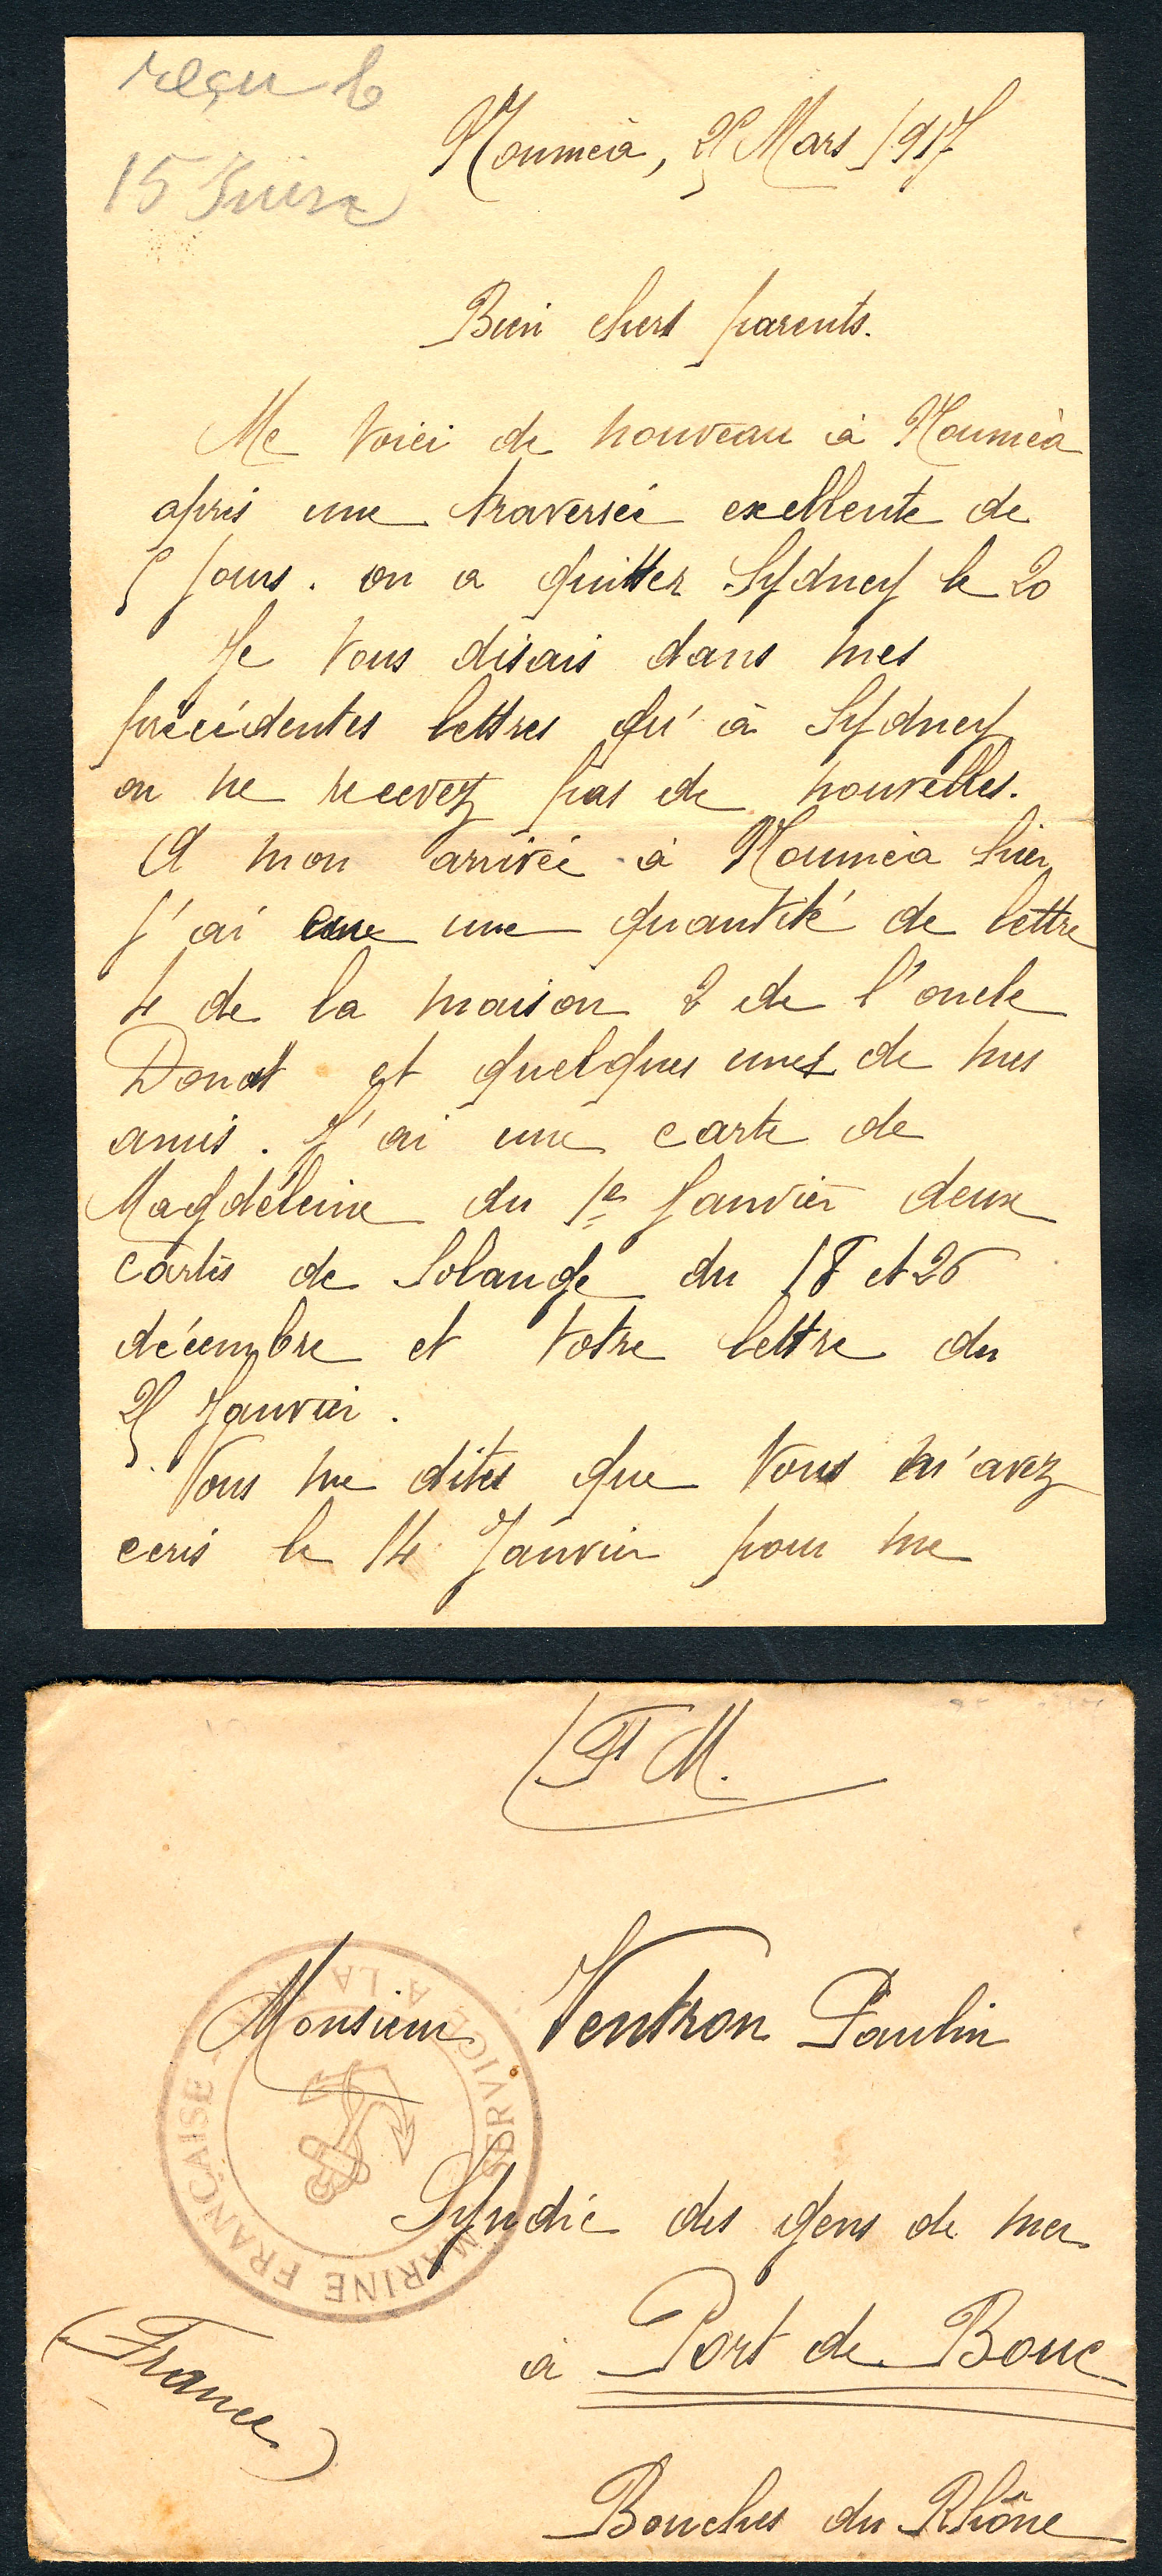 reçu le
15 Juin
Nouméa, 25 Mars 1917
Bien chers parents.
Me voici de nouveau à Nouméa
après une traversée exellente de
5 jours. on a quitter Sydney le 20
Je vous disais dans mes
précédentes lettres qu'à Sydney
on ne recevez pas de nouvelles.
A mon arrivée à Nouméa hier
j'ai eue une quantité de lettre
4 de la maison 2 de l'oncle
Donat et quelques unes de mes
amis. J'ai une carte de
Magdéleine du 1er Janvier deux
cartes de Solange du 18 et 26
décembre et votre lettre du
25 Janvier.
Vous me dites que vous m'avez
ecris le 14 Janvier pour me
F M.
Monsieur Ventron Paulin
Syndic des gens de mer
à Port de Bouc
(France)
Bouches du Rhône
MARINE FRANÇAISE
SERVICE A LA